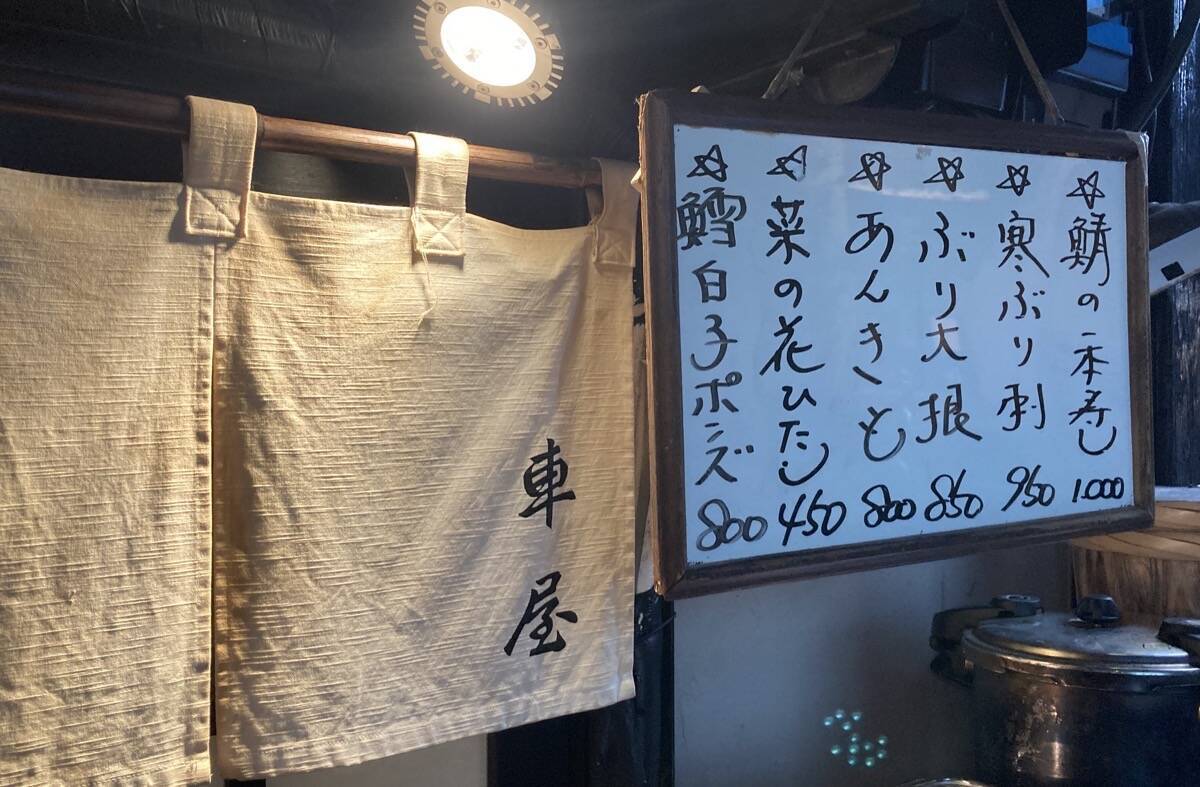 ☆鯖の一本寿し 1.000
☆寒ぶり刺 950
☆ぶり大根 850
☆あんきも 800
☆菜の花ひたし 450
☆鱈白子ポンズ 800
車屋